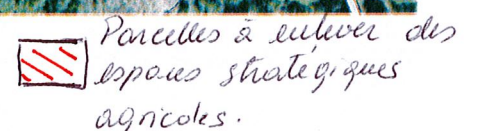 Parcelles à enlever des
espaces stratégiques
agricoles.